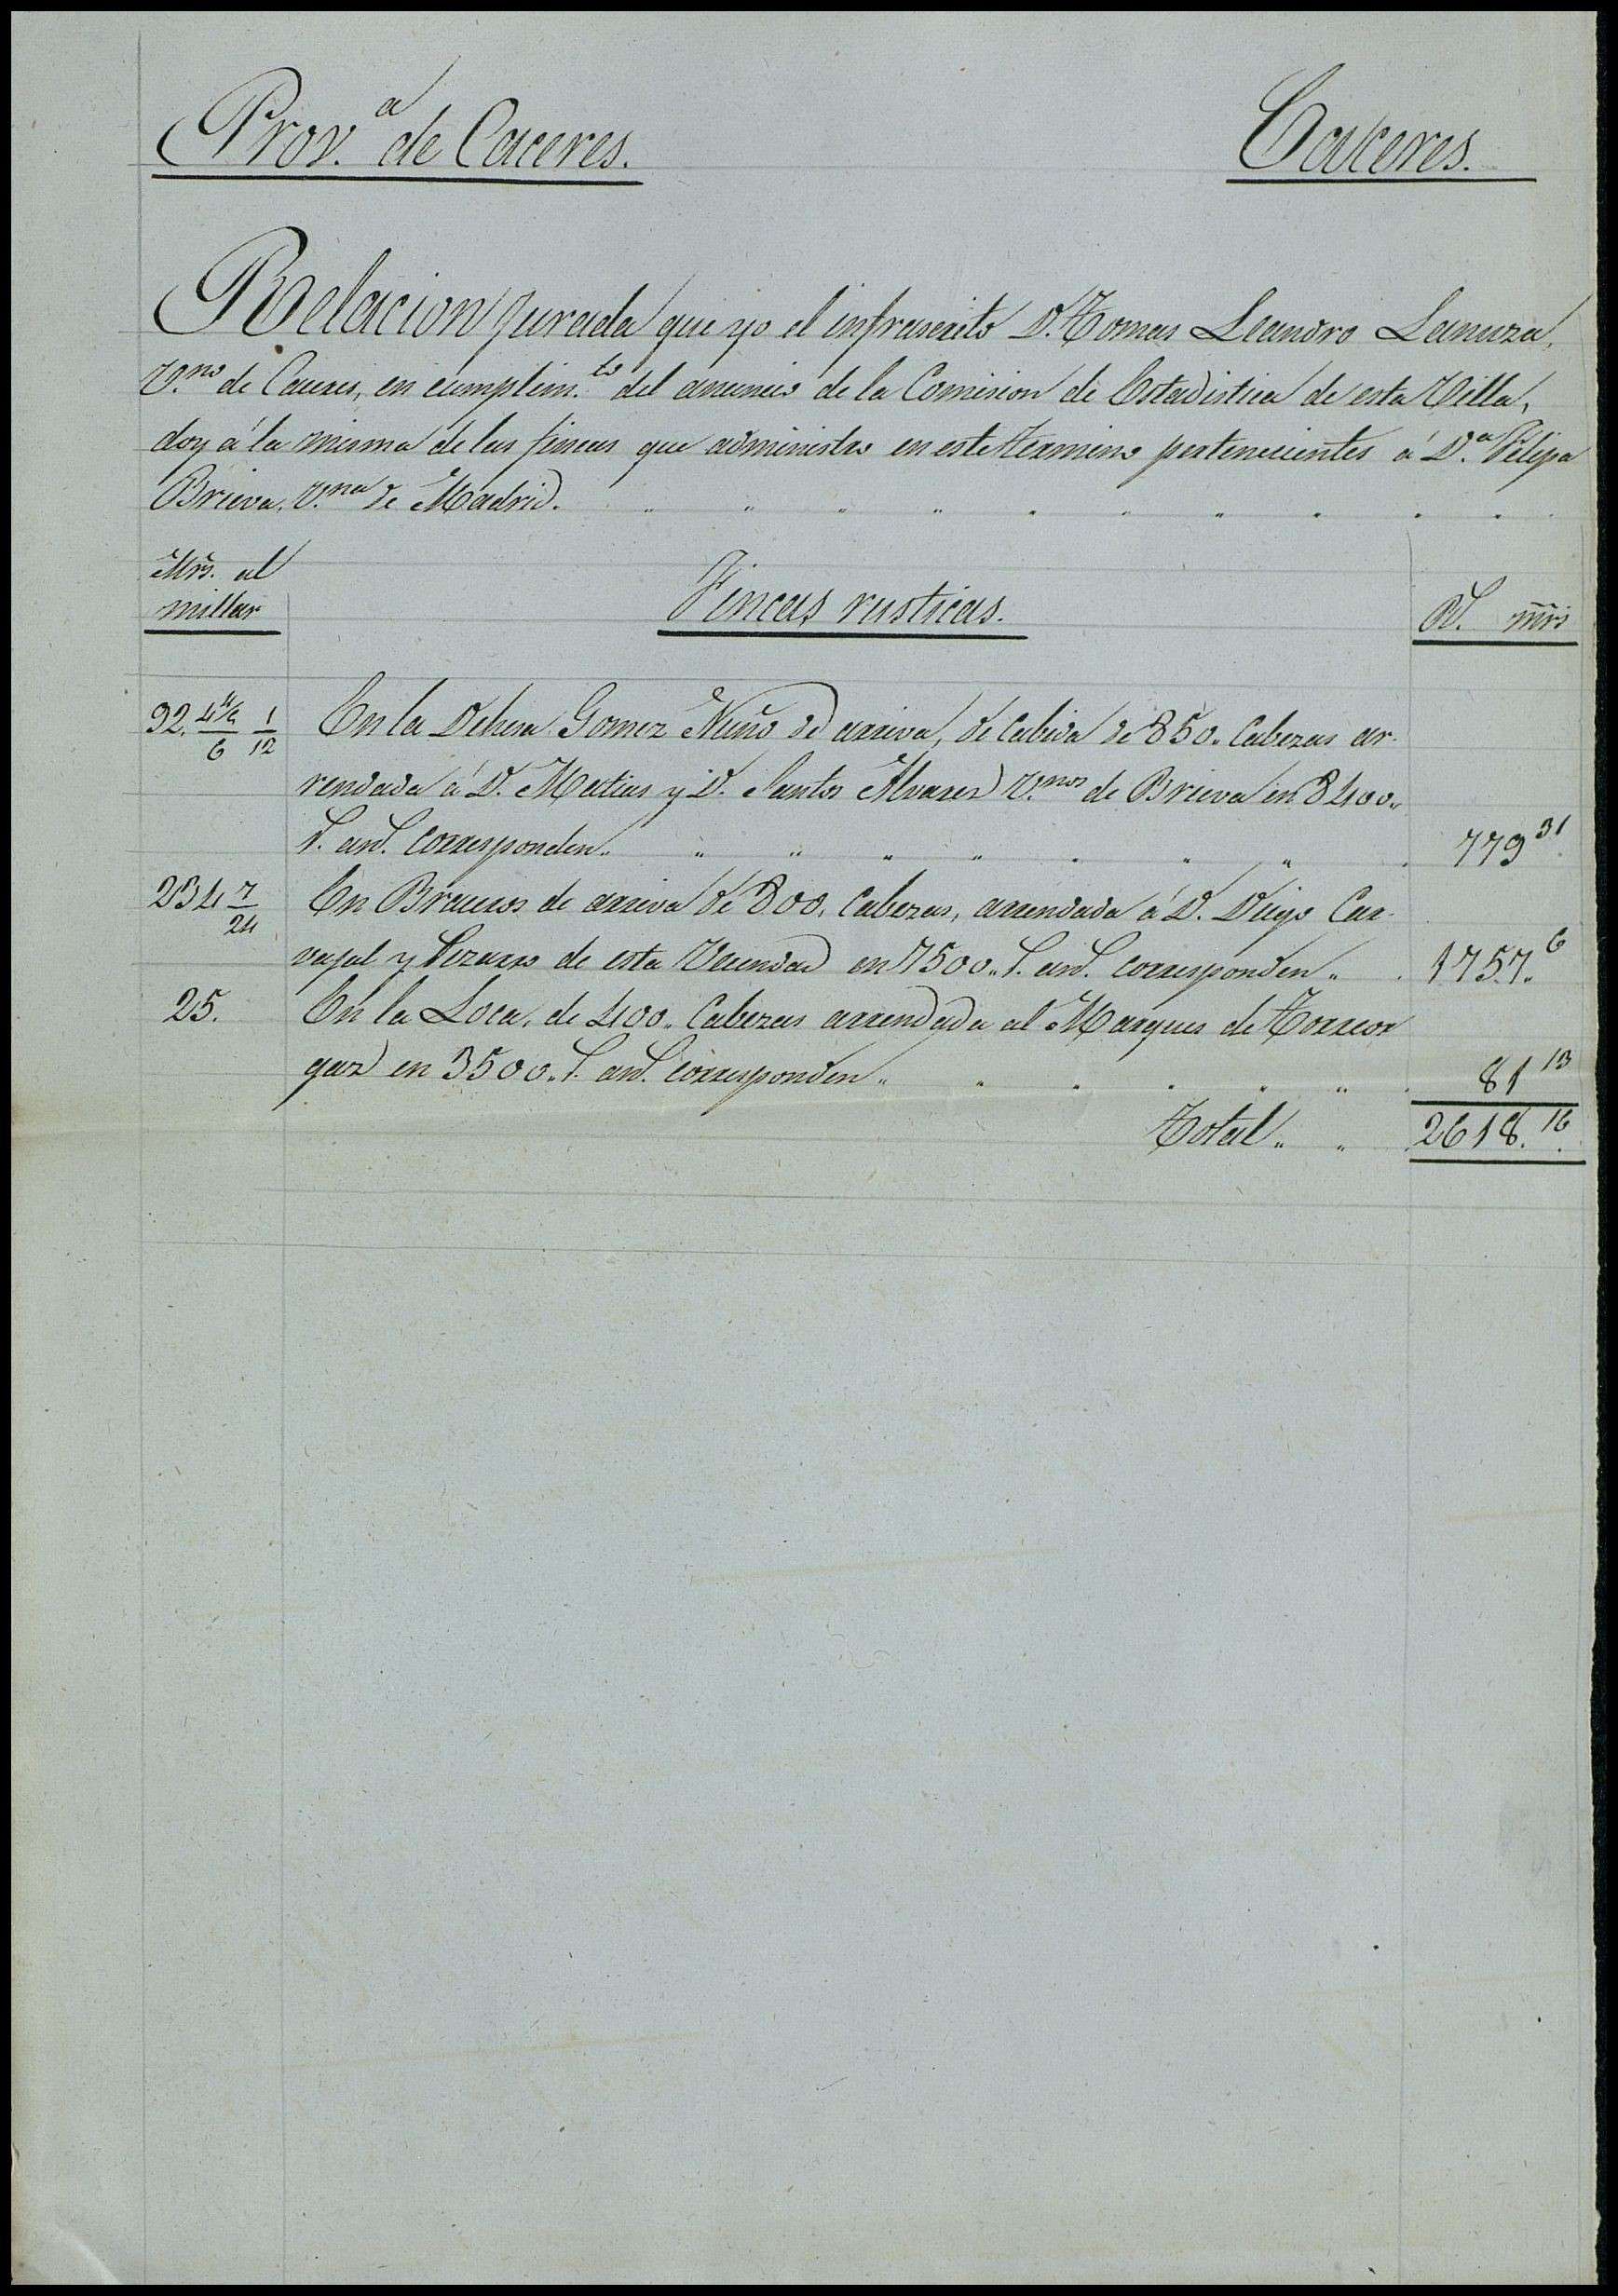 Prov.ª de Caceres.
Caceres.
Relacion Jurada que yo el infrascrito D. Tomas Leandro Lanuza,
V.no de Caceres, en cumplim.to del anuncio de la Comision de Estadistica de esta Villa,
doy á la misma de las fincas que administro en este termino pertenecientes á D.ª Felipa
Brieva, V.na de Madrid. " " " " " " " " " "
Mrs. al
millar
Fincas rusticas.
Rs. mrs
92. 4 4/6 1/12 En la Dehesa Gomez Nuño de arriva, de cabida de 850. Cabezas ar-
rendada á D. Matias y D. Santos Alvarez V.nos de Brieva en 8400.
rs. ans. corresponden. " " " " " " " 779 31
234 7/24 En Braceros de arriva de 800. Cabezas, arrendada á D. Diego Car-
vajal y Pizarro de esta Vecindad en 7500. rs. ans. corresponden " 1757. 6
25. En la Loca, de 400. Cabezas arrendada al Marques de Torreor
gaz en 3500. rs. ans. corresponden " " " " " " 81 13
Total " " 2618. 16